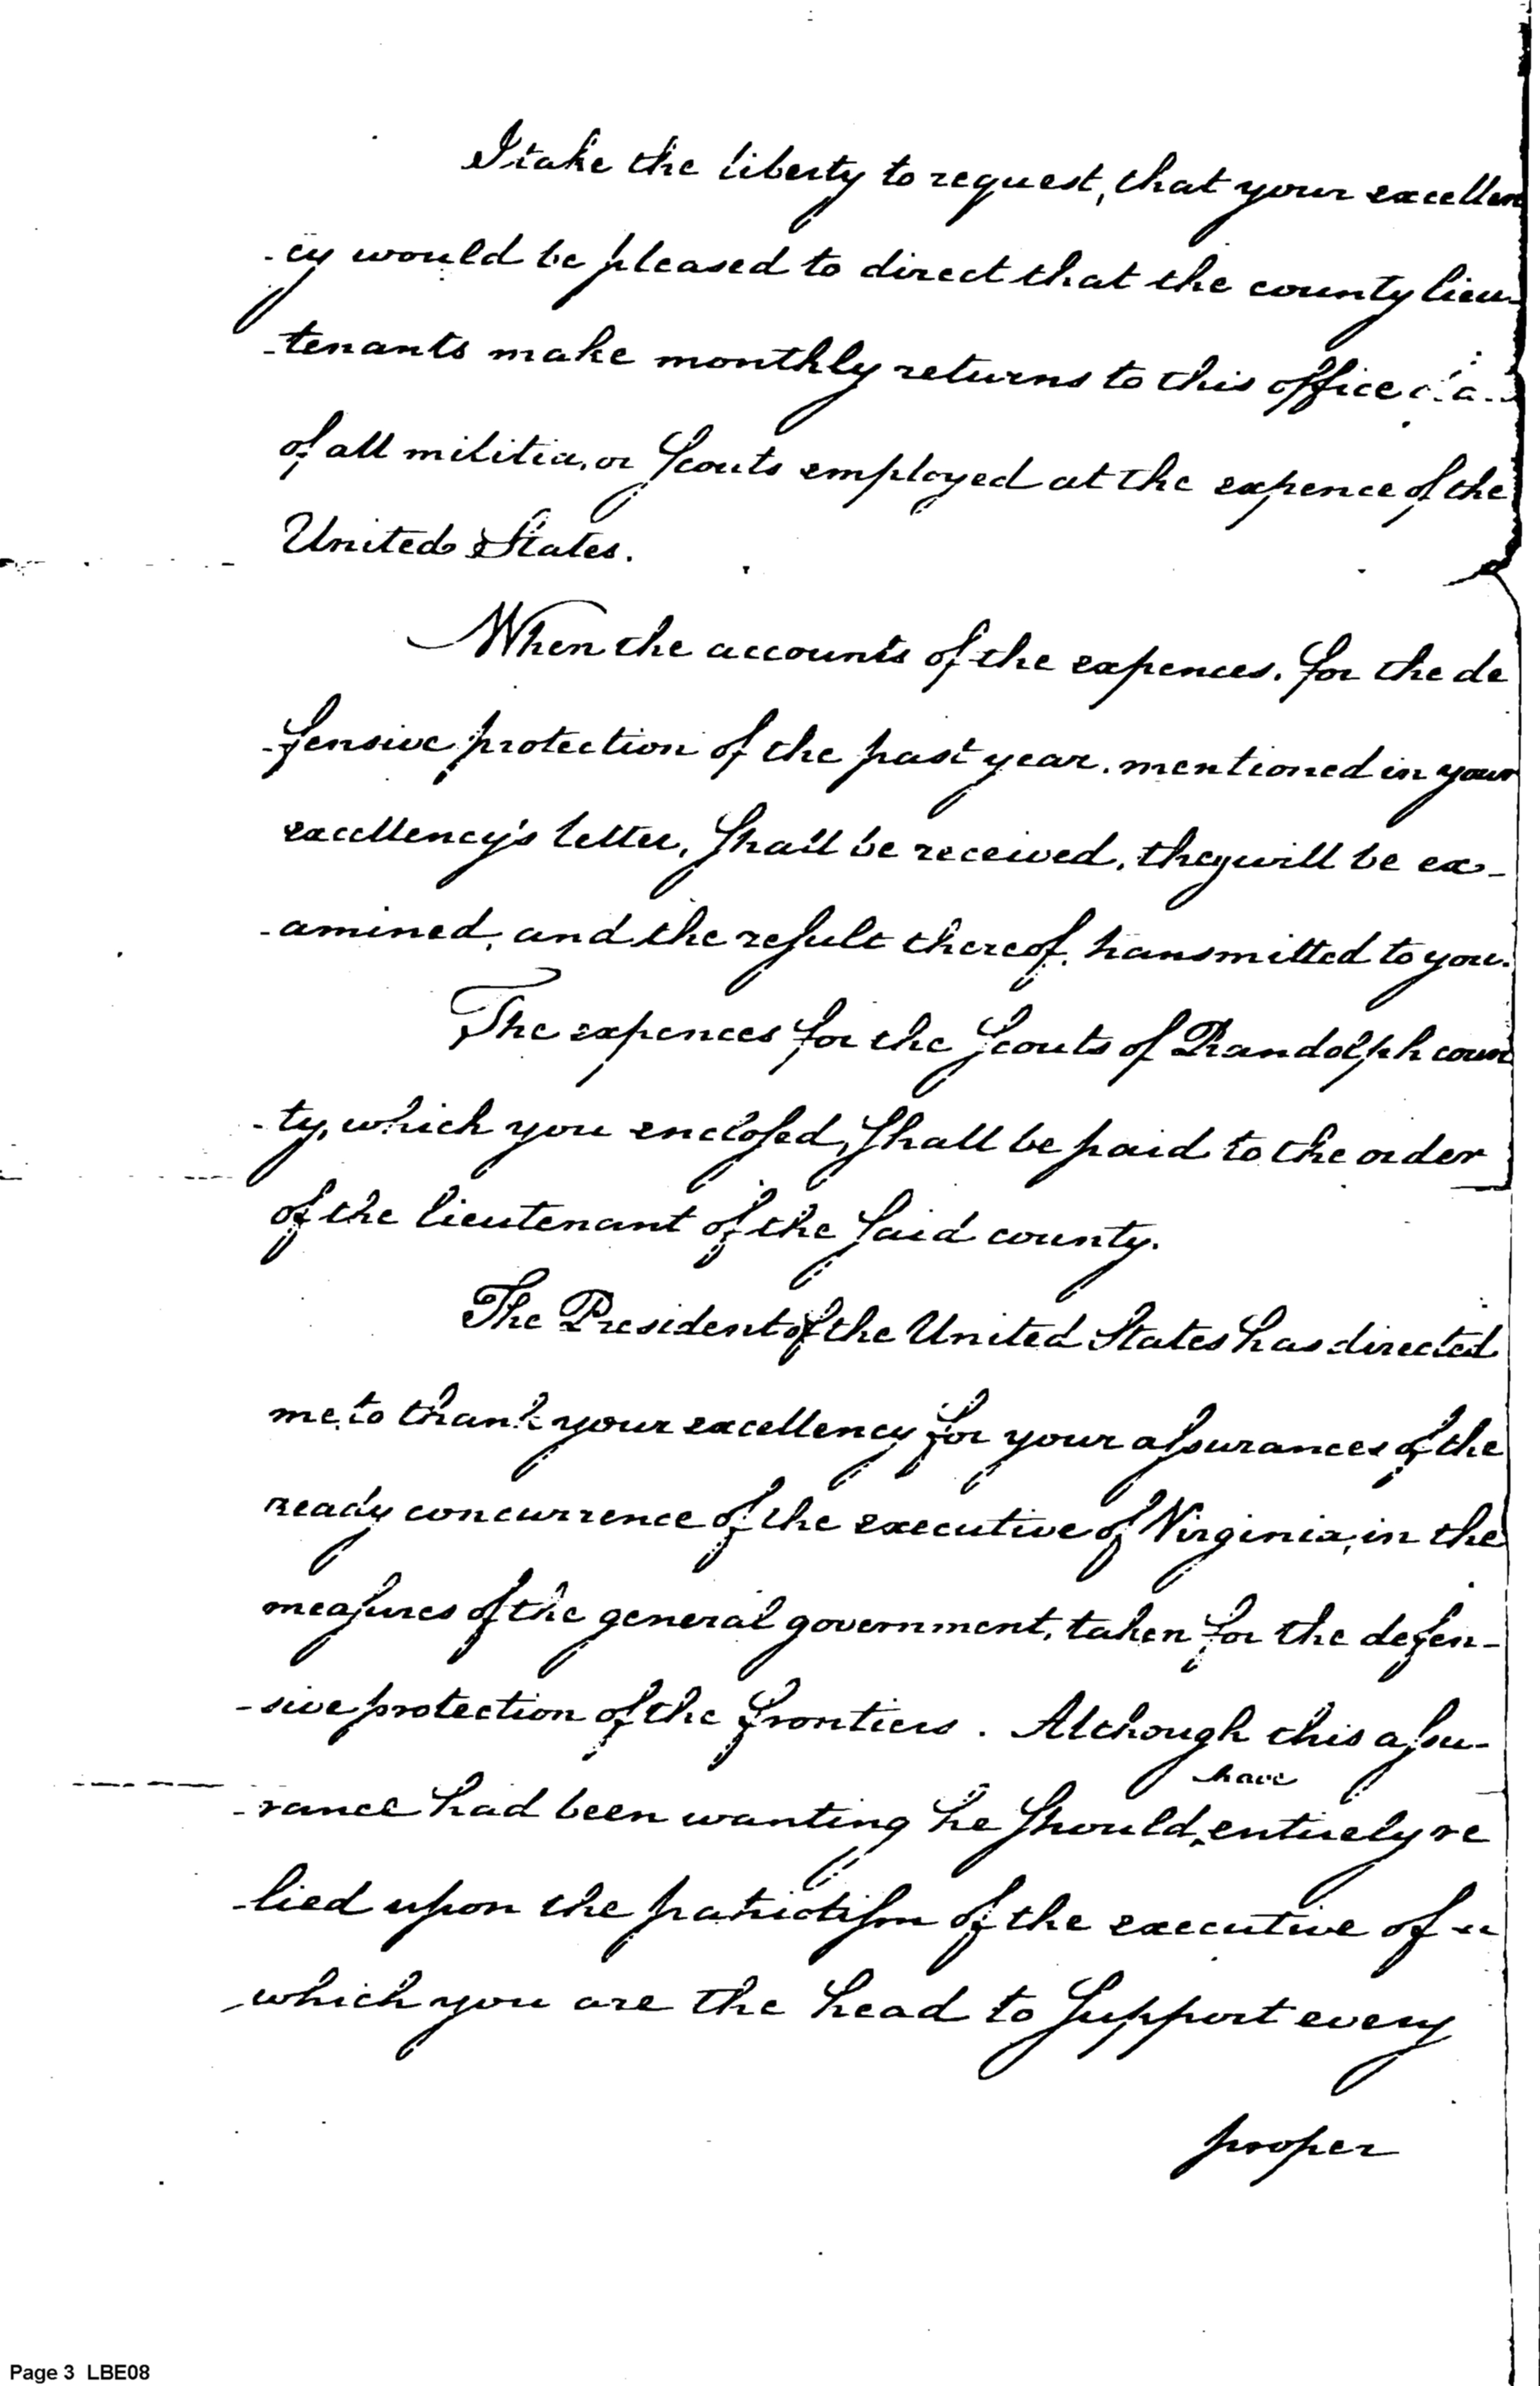 I take the liberty to request, that your excellen
-cy would be pleased to direct that the county lieu-
-tenants make monthly returns to this office
of all militia, or Scouts employed at the expence of the
United States.
When the accounts of the expences, for the de
-fensive protection of the past year, mentioned in your
excellency's letter, Shall be received, they will be ex-
-amined, and the result thereof, transmitted to you.
The expences for the Scouts of Randolph coun
-ty, which you enclosed, Shall be paid to the order
of the lieutenant of the Said county.
The President of the United States has directed
me to thank your excellency for your assurances of the
ready concurrence of the executive of Virginia, in the
measures of the general government, taken for the defen-
-sive protection of the frontiers. Although this assu-
have
-rance had been wanting he Should entirely re
-lied upon the patriotism of the executive of
which you are the head to Support every
proper
Page 3 LBE08